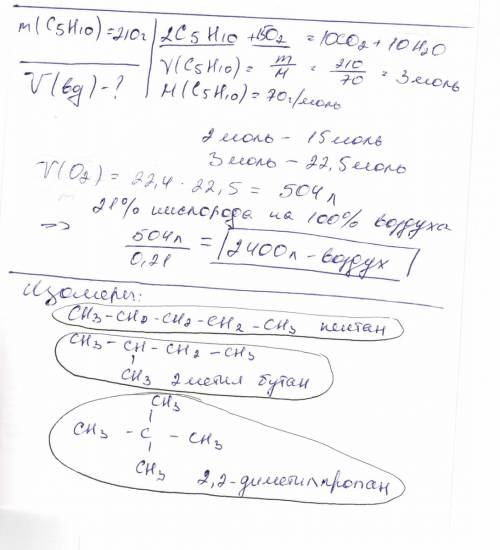 m(C5H10)=210г
V(вз)-?
2C5H10 + 15O2 = 10CO2 + 10H2O
γ(C5H10) = m/M = 210/70 = 3 моль
M(C5H10) = 70 г/моль
2 моль - 15 моль
3 моль - 22,5 моль
V(O2) = 22,4 · 22,5 = 504 л
21% кислорода на 100% воздуха
=> 504 л / 0,21 = 2400 л - воздух
Изомеры:
CH3-CH2-CH2-CH2-CH3 пентан
CH3-CH-CH2-CH3
CH3 2 метил бутан
CH3
CH3 - C - CH3
CH3
2,2-диметилпропан